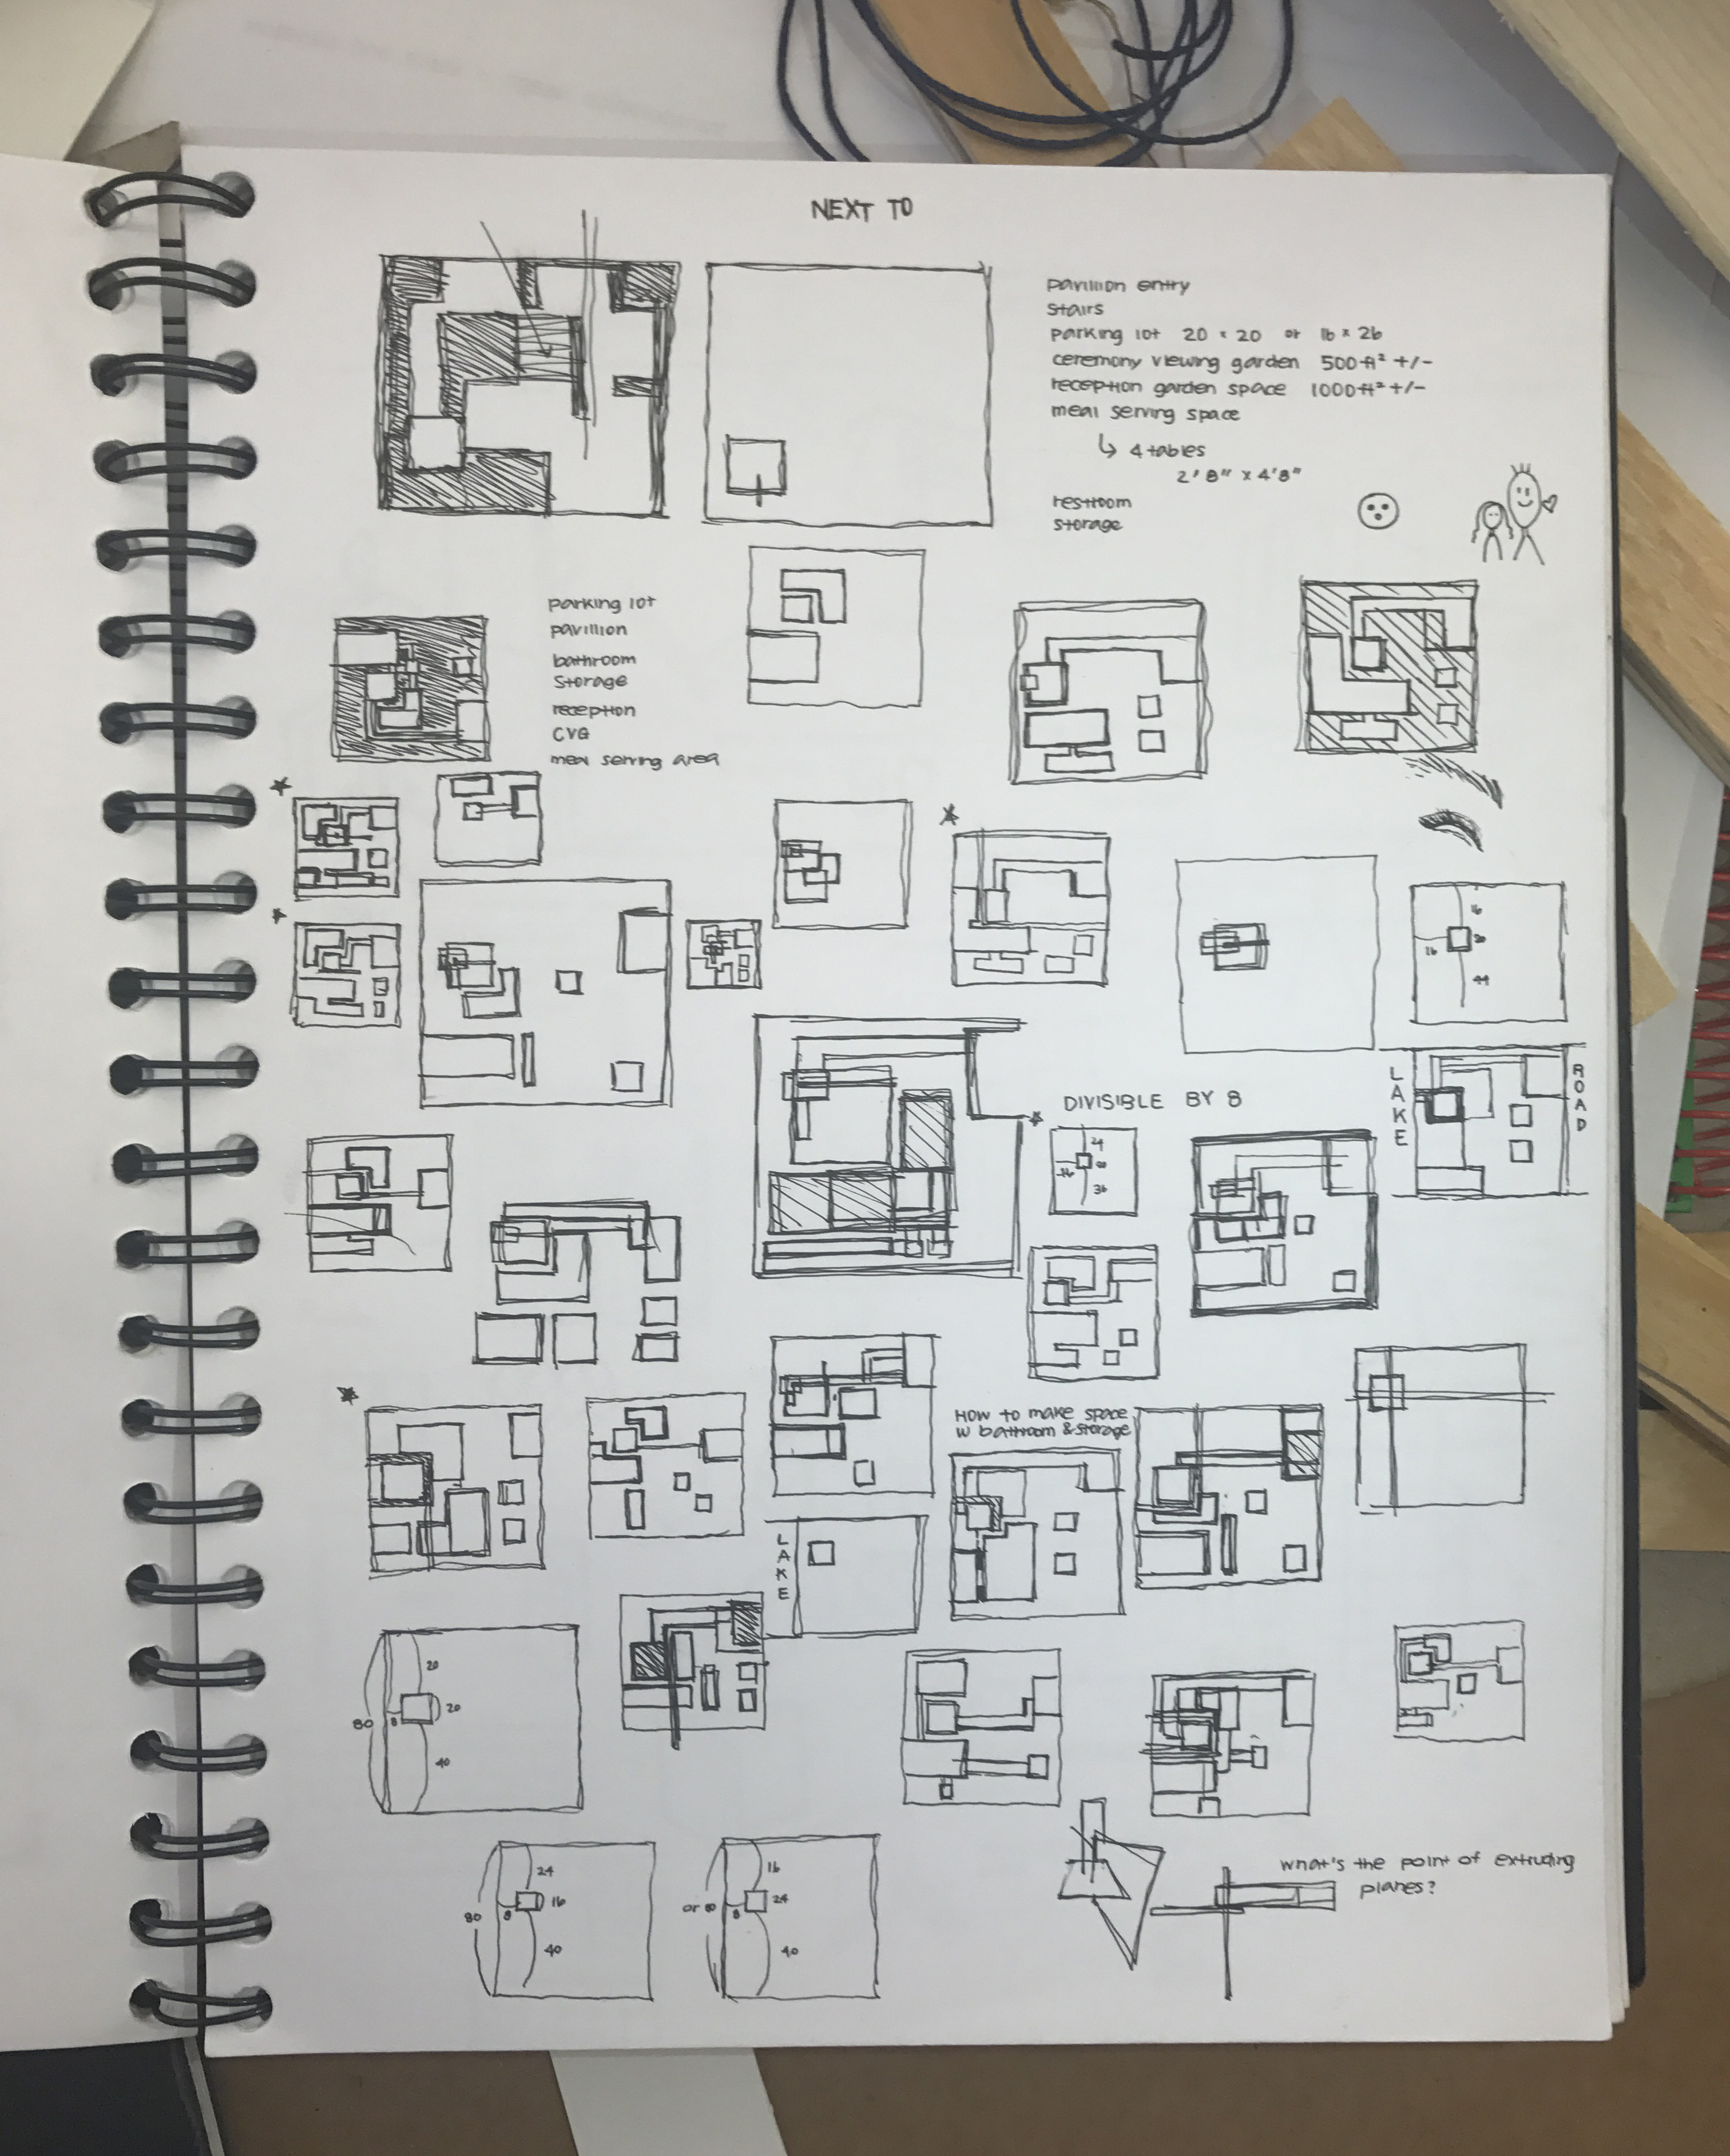 NEXT TO
pavillion entry
stairs
parking lot 20 x 20 or 16 x 26
ceremony viewing garden 500 ft² +/-
reception garden space 1000 ft² +/-
meal serving space
↳ 4 tables
2' 8" x 4'8"
restroom
storage
parking lot
pavillion
bathroom
storage
reception
CVG
meal serving area
16
20
16
44
LAKE
ROAD
DIVISIBLE BY 8
24
16
36
HOW to make space
w bathroom & storage
LAKE
20
80
8
20
40
24
80
8
16
40
16
or 80
8
24
40
what's the point of extruding
planes?